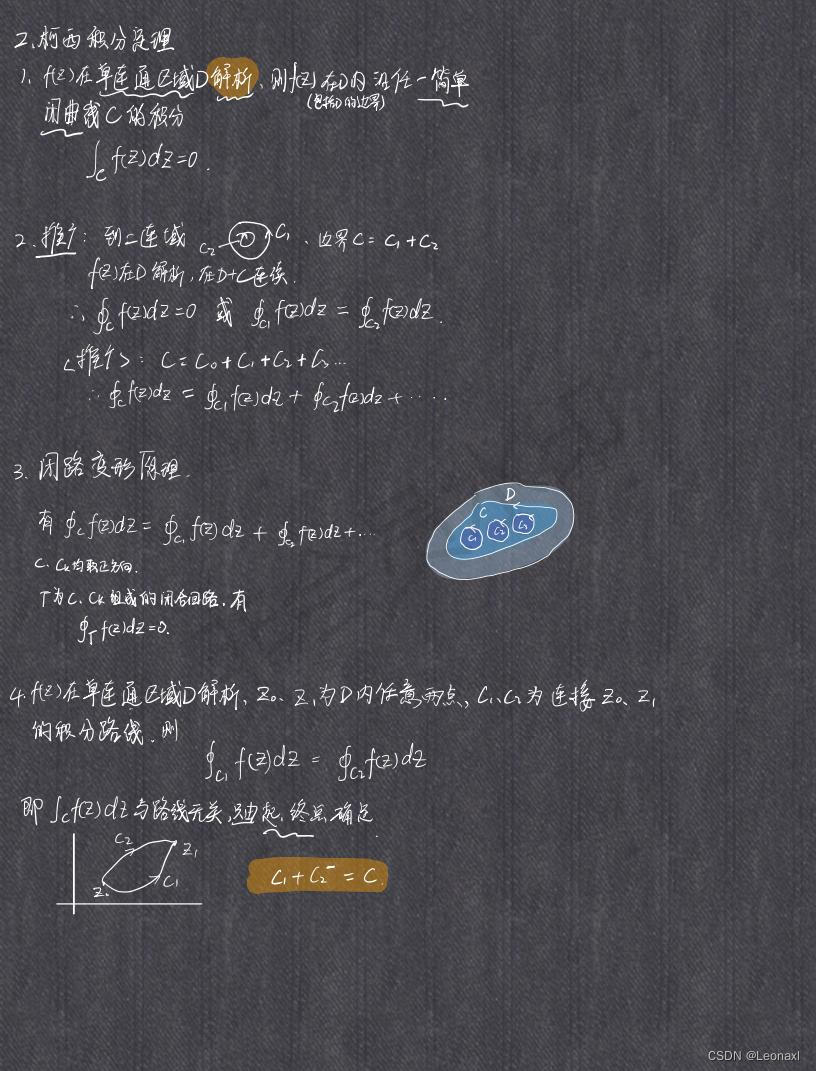 2、柯西积分定理
1、f(z)在单连通区域D解析、则f(z)在D内沿任一简单
(包括D的边界)
闭曲线C的积分
∫_C f(z)dz=0.
2、推广：到二连域 C₂ C₁、边界C=C₁+C₂
f(z)在D解析,在D+C连续.
∴ ∮_C f(z)dz=0 或 ∮_{C₁} f(z)dz = ∮_{C₂} f(z)dz.
<推广>：C=C₀+C₁+C₂+C₃...
∴ ∮_C f(z)dz = ∮_{C₁} f(z)dz + ∮_{C₂} f(z)dz + ·····
3、闭路变形原理.
D
C
C₁ C₂ C₃
有 ∮_C f(z)dz = ∮_{C₁} f(z)dz + ∮_{C₂} f(z)dz+...
C、Cₖ均取正方向.
Γ为C、Cₖ组成的闭合回路.有
∮_Γ f(z)dz=0.
4.f(z)在单连通区域D解析、z₀、z₁为D内任意两点,C₁、C₂为连接z₀、z₁
的积分路线.则
∮_{C₁} f(z)dz = ∮_{C₂} f(z)dz
即∫_C f(z)dz与路线无关,只由起、终点确定.
C₂
z₁
z₀
C₁
C₁+C₂⁻=C.
CSDN @Leonaxl